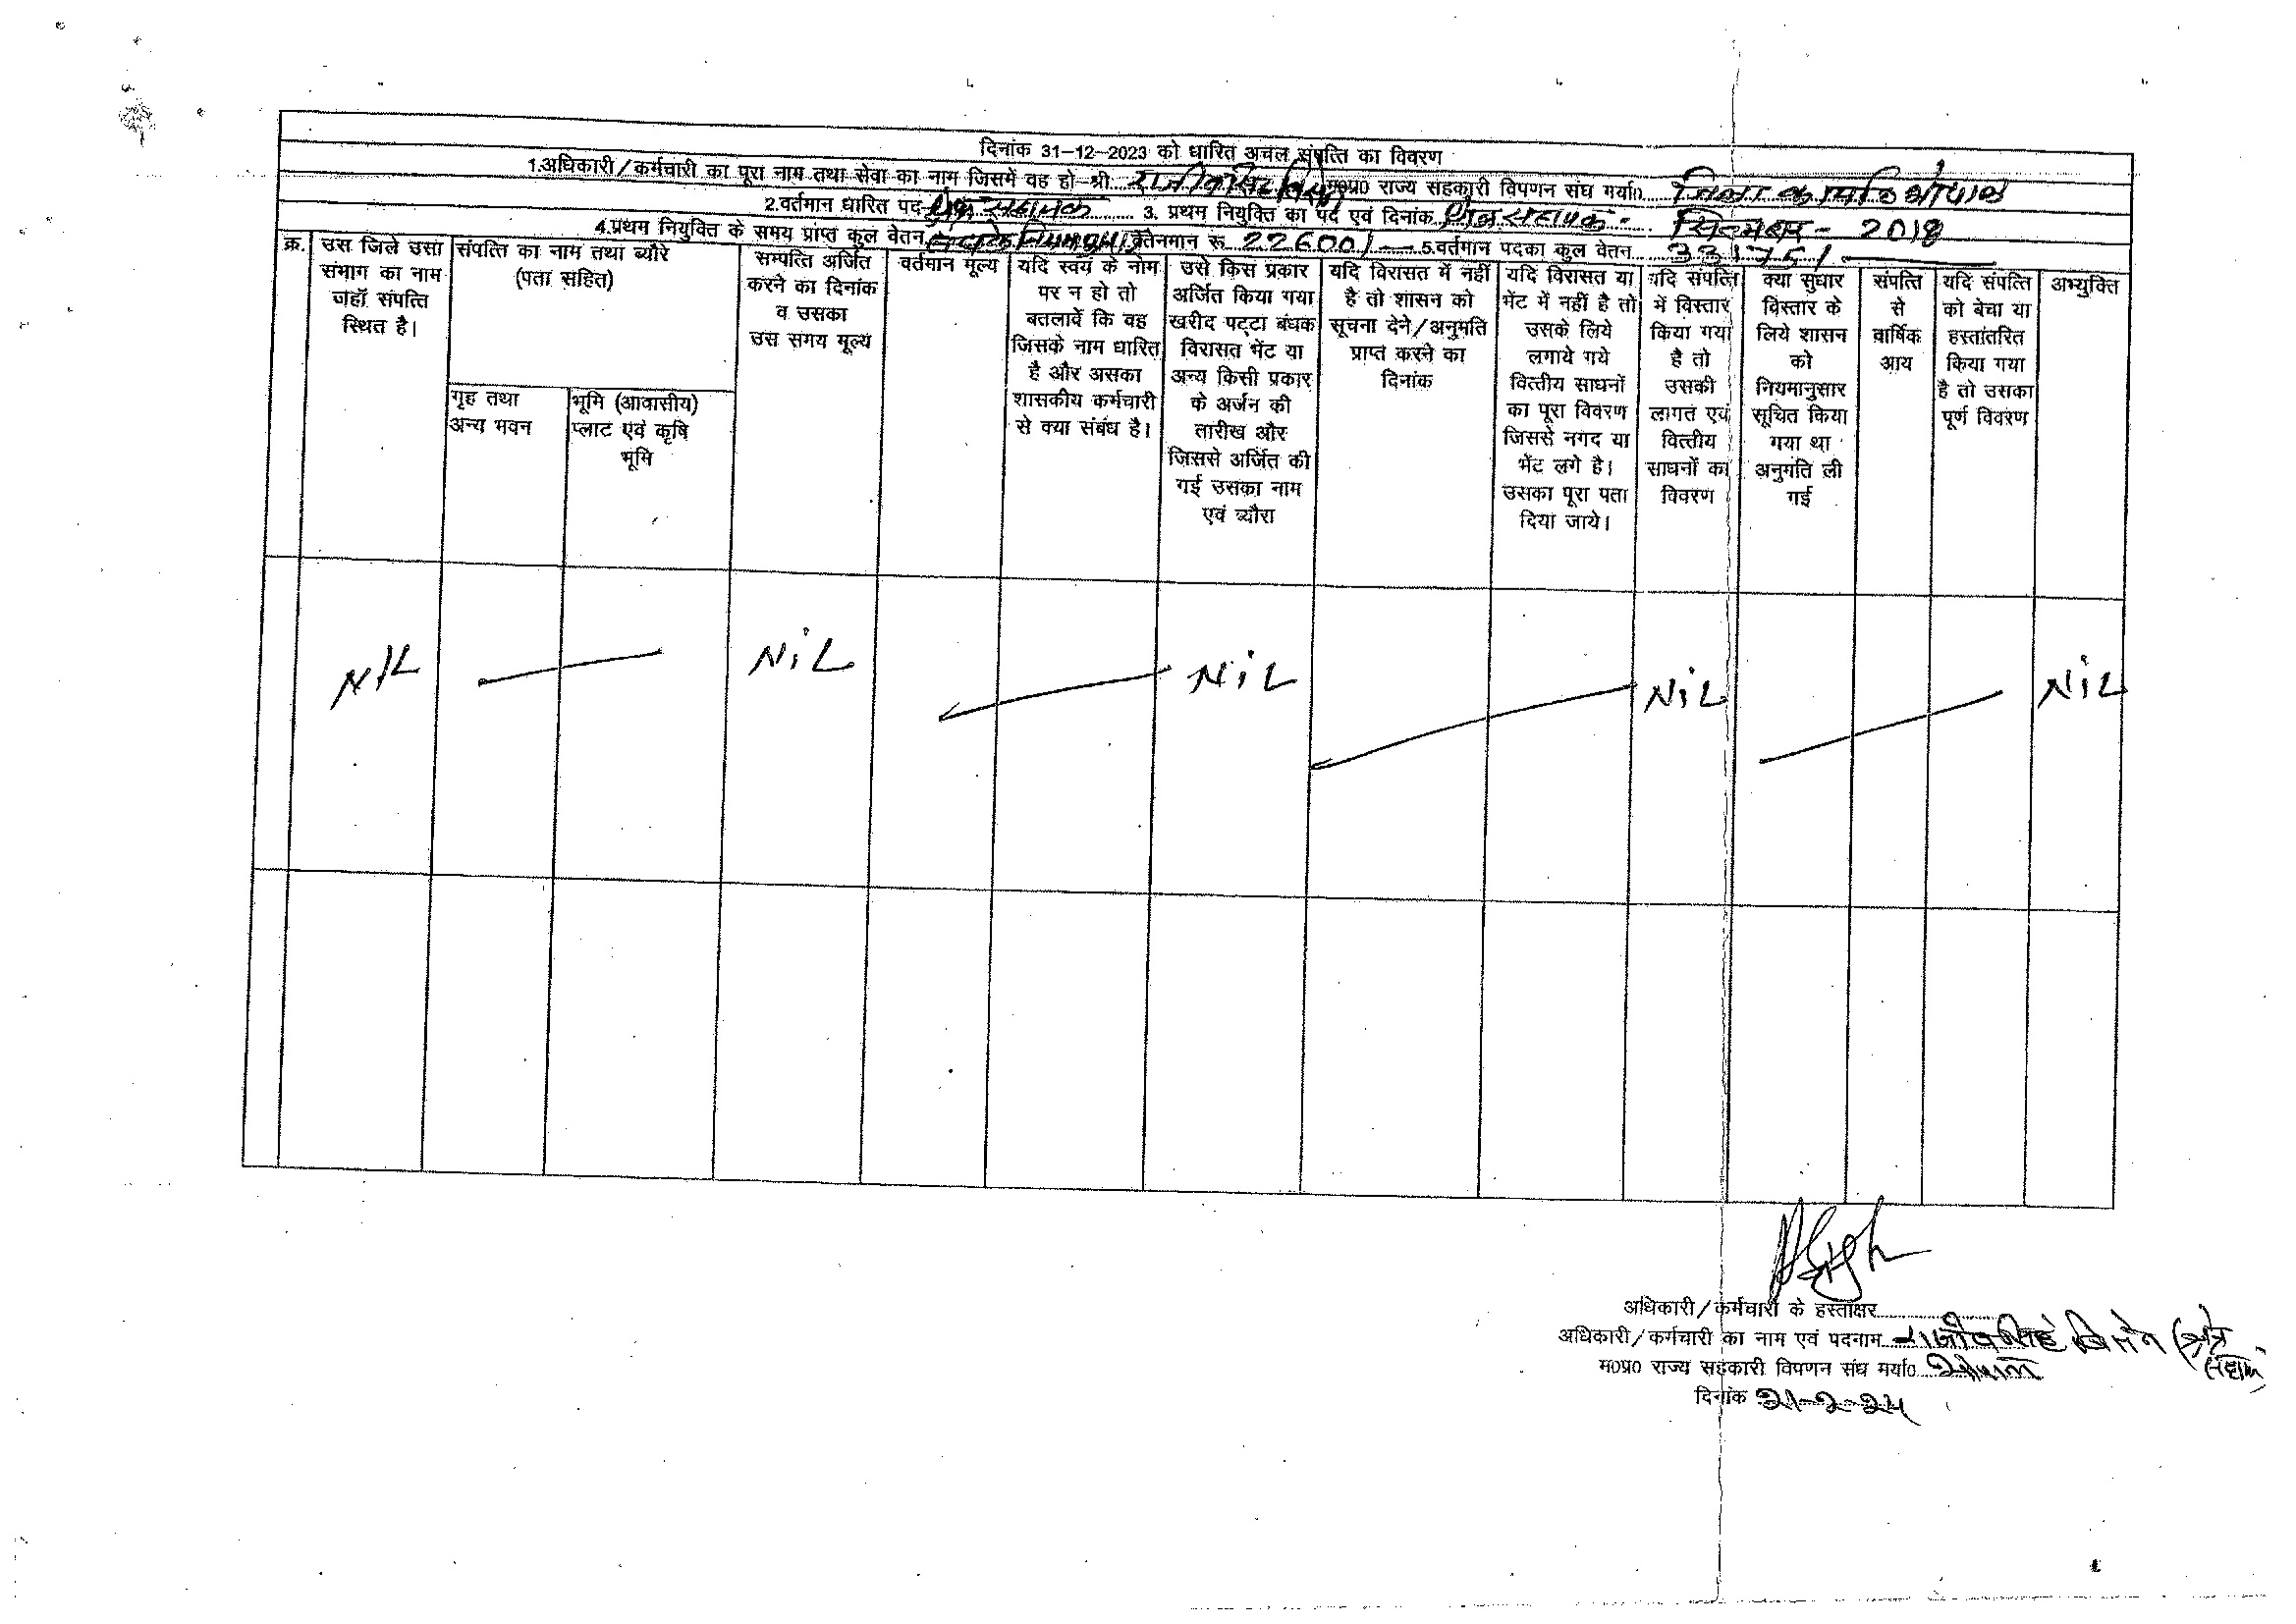 दिनांक 31-12-2023 को धारित अचल संपत्ति का विवरण
1.अधिकारी/कर्मचारी का पूरा नाम तथा सेवा का नाम जिसमें वह हो-श्री म0प्र0 राज्य सहकारी विपणन संघ मर्या0
2.वर्तमान धारित पद सहायक 3. प्रथम नियुक्ति का पद एवं दिनांक सहायक - सितम्बर - 2018
4.प्रथम नियुक्ति के समय प्राप्त कुल वेतन वेतनमान रू 22600/- 5.वर्तमान पदका कुल वेतन 33175/-
क्र.
उस जिले उसा
संभाग का नाम
जहाँ संपत्ति
स्थित है।
संपत्ति का नाम तथा ब्यौरे
(पता सहित)
गृह तथा
अन्य भवन
भूमि (आवासीय)
प्लाट एवं कृषि
भूमि
सम्पत्ति अर्जित
करने का दिनांक
व उसका
उस समय मूल्य
वर्तमान मूल्य
यदि स्वयं के नाम
पर न हो तो
बतलावें कि वह
जिसके नाम धारित
है और असका
शासकीय कर्मचारी
से क्या संबंध है।
उसे किस प्रकार
अर्जित किया गया
खरीद पट्टा बंधक
विरासत भेंट या
अन्य किसी प्रकार
के अर्जन की
तारीख और
जिससे अर्जित की
गई उसका नाम
एवं ब्यौरा
यदि विरासत में नहीं
है तो शासन को
सूचना देने/अनुमति
प्राप्त करने का
दिनांक
यदि विरासत या
भेंट में नहीं है तो
उसके लिये
लगाये गये
वित्तीय साधनों
का पूरा विवरण
जिससे नगद या
भेंट लगे है।
उसका पूरा पता
दिया जाये।
यदि संपत्ति
में विस्तार
किया गया
है तो
उसकी
लागत एवं
वित्तीय
साधनों का
विवरण
क्या सुधार
विस्तार के
लिये शासन
को
नियमानुसार
सूचित किया
गया था
अनुमति ली
गई
संपत्ति
से
वार्षिक
आय
यदि संपत्ति
को बेचा या
हस्तांतरित
किया गया
है तो उसका
पूर्ण विवरण
अभ्युक्ति
NIL NiL NiL NiL NiL
अधिकारी/कर्मचारी के हस्ताक्षर
अधिकारी/कर्मचारी का नाम एवं पदनाम
म0प्र0 राज्य सहकारी विपणन संघ मर्या0 भोपाल
दिनांक 21-2-24